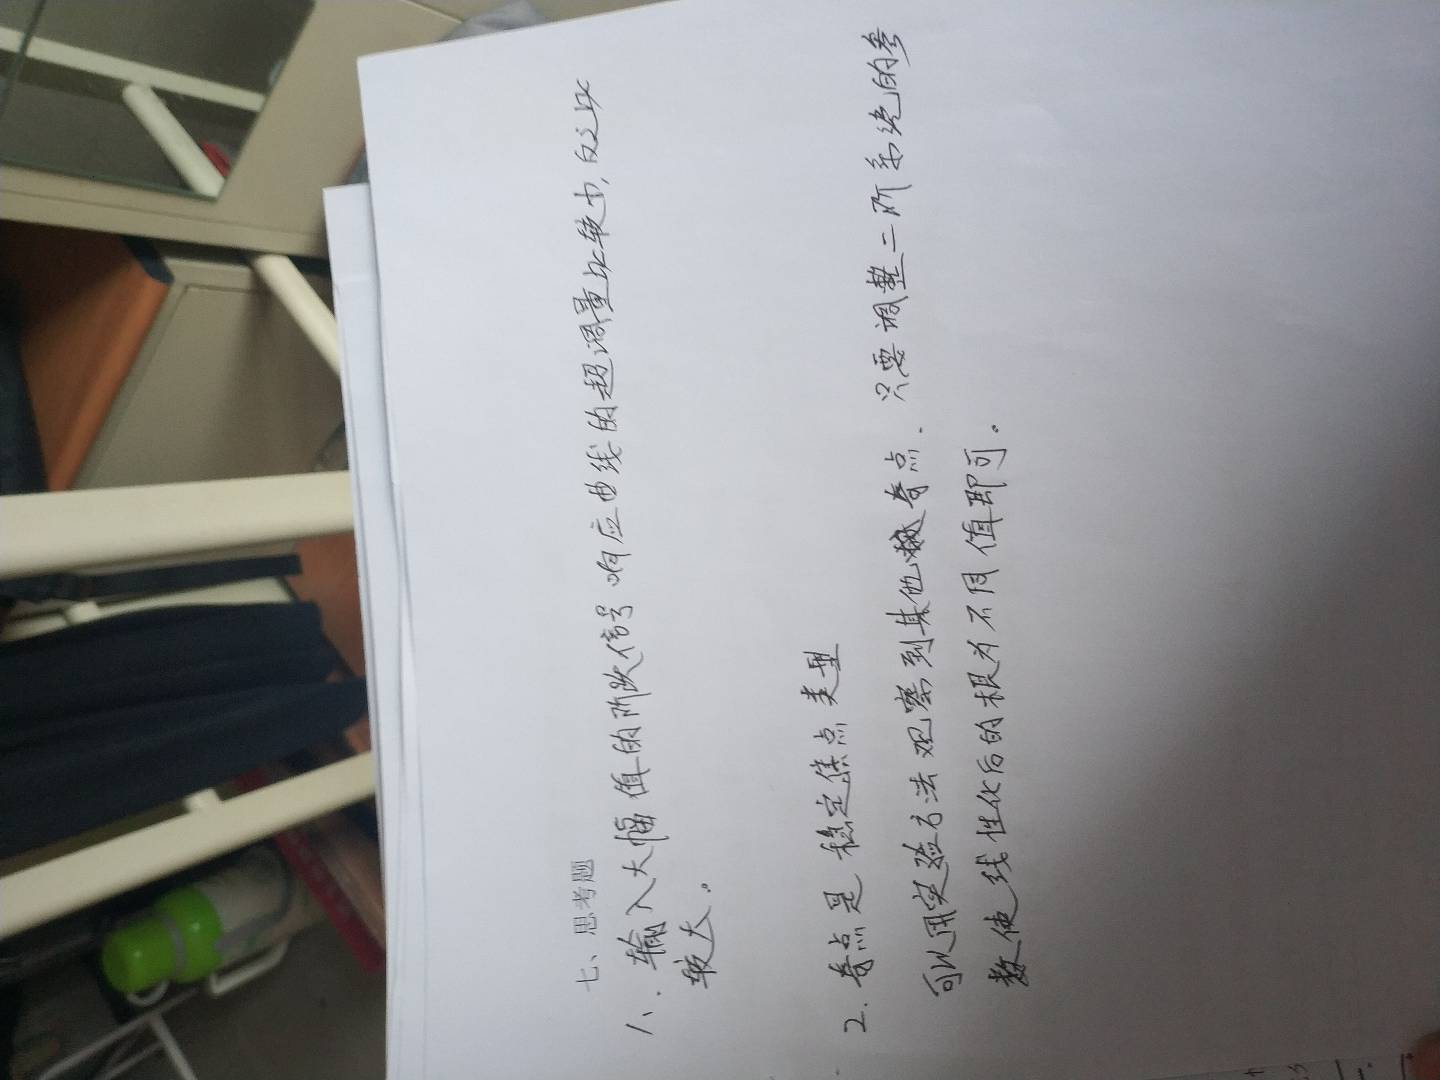 七、思考题
1、输入大幅值的阶跃信号响应曲线的超调量比较小,反之比
较大。
2. 奇点是稳定焦点类型
可以用实验方法观察到其他奇点.只要调整二阶系统的参
数使线性化后的根为不同值即可。